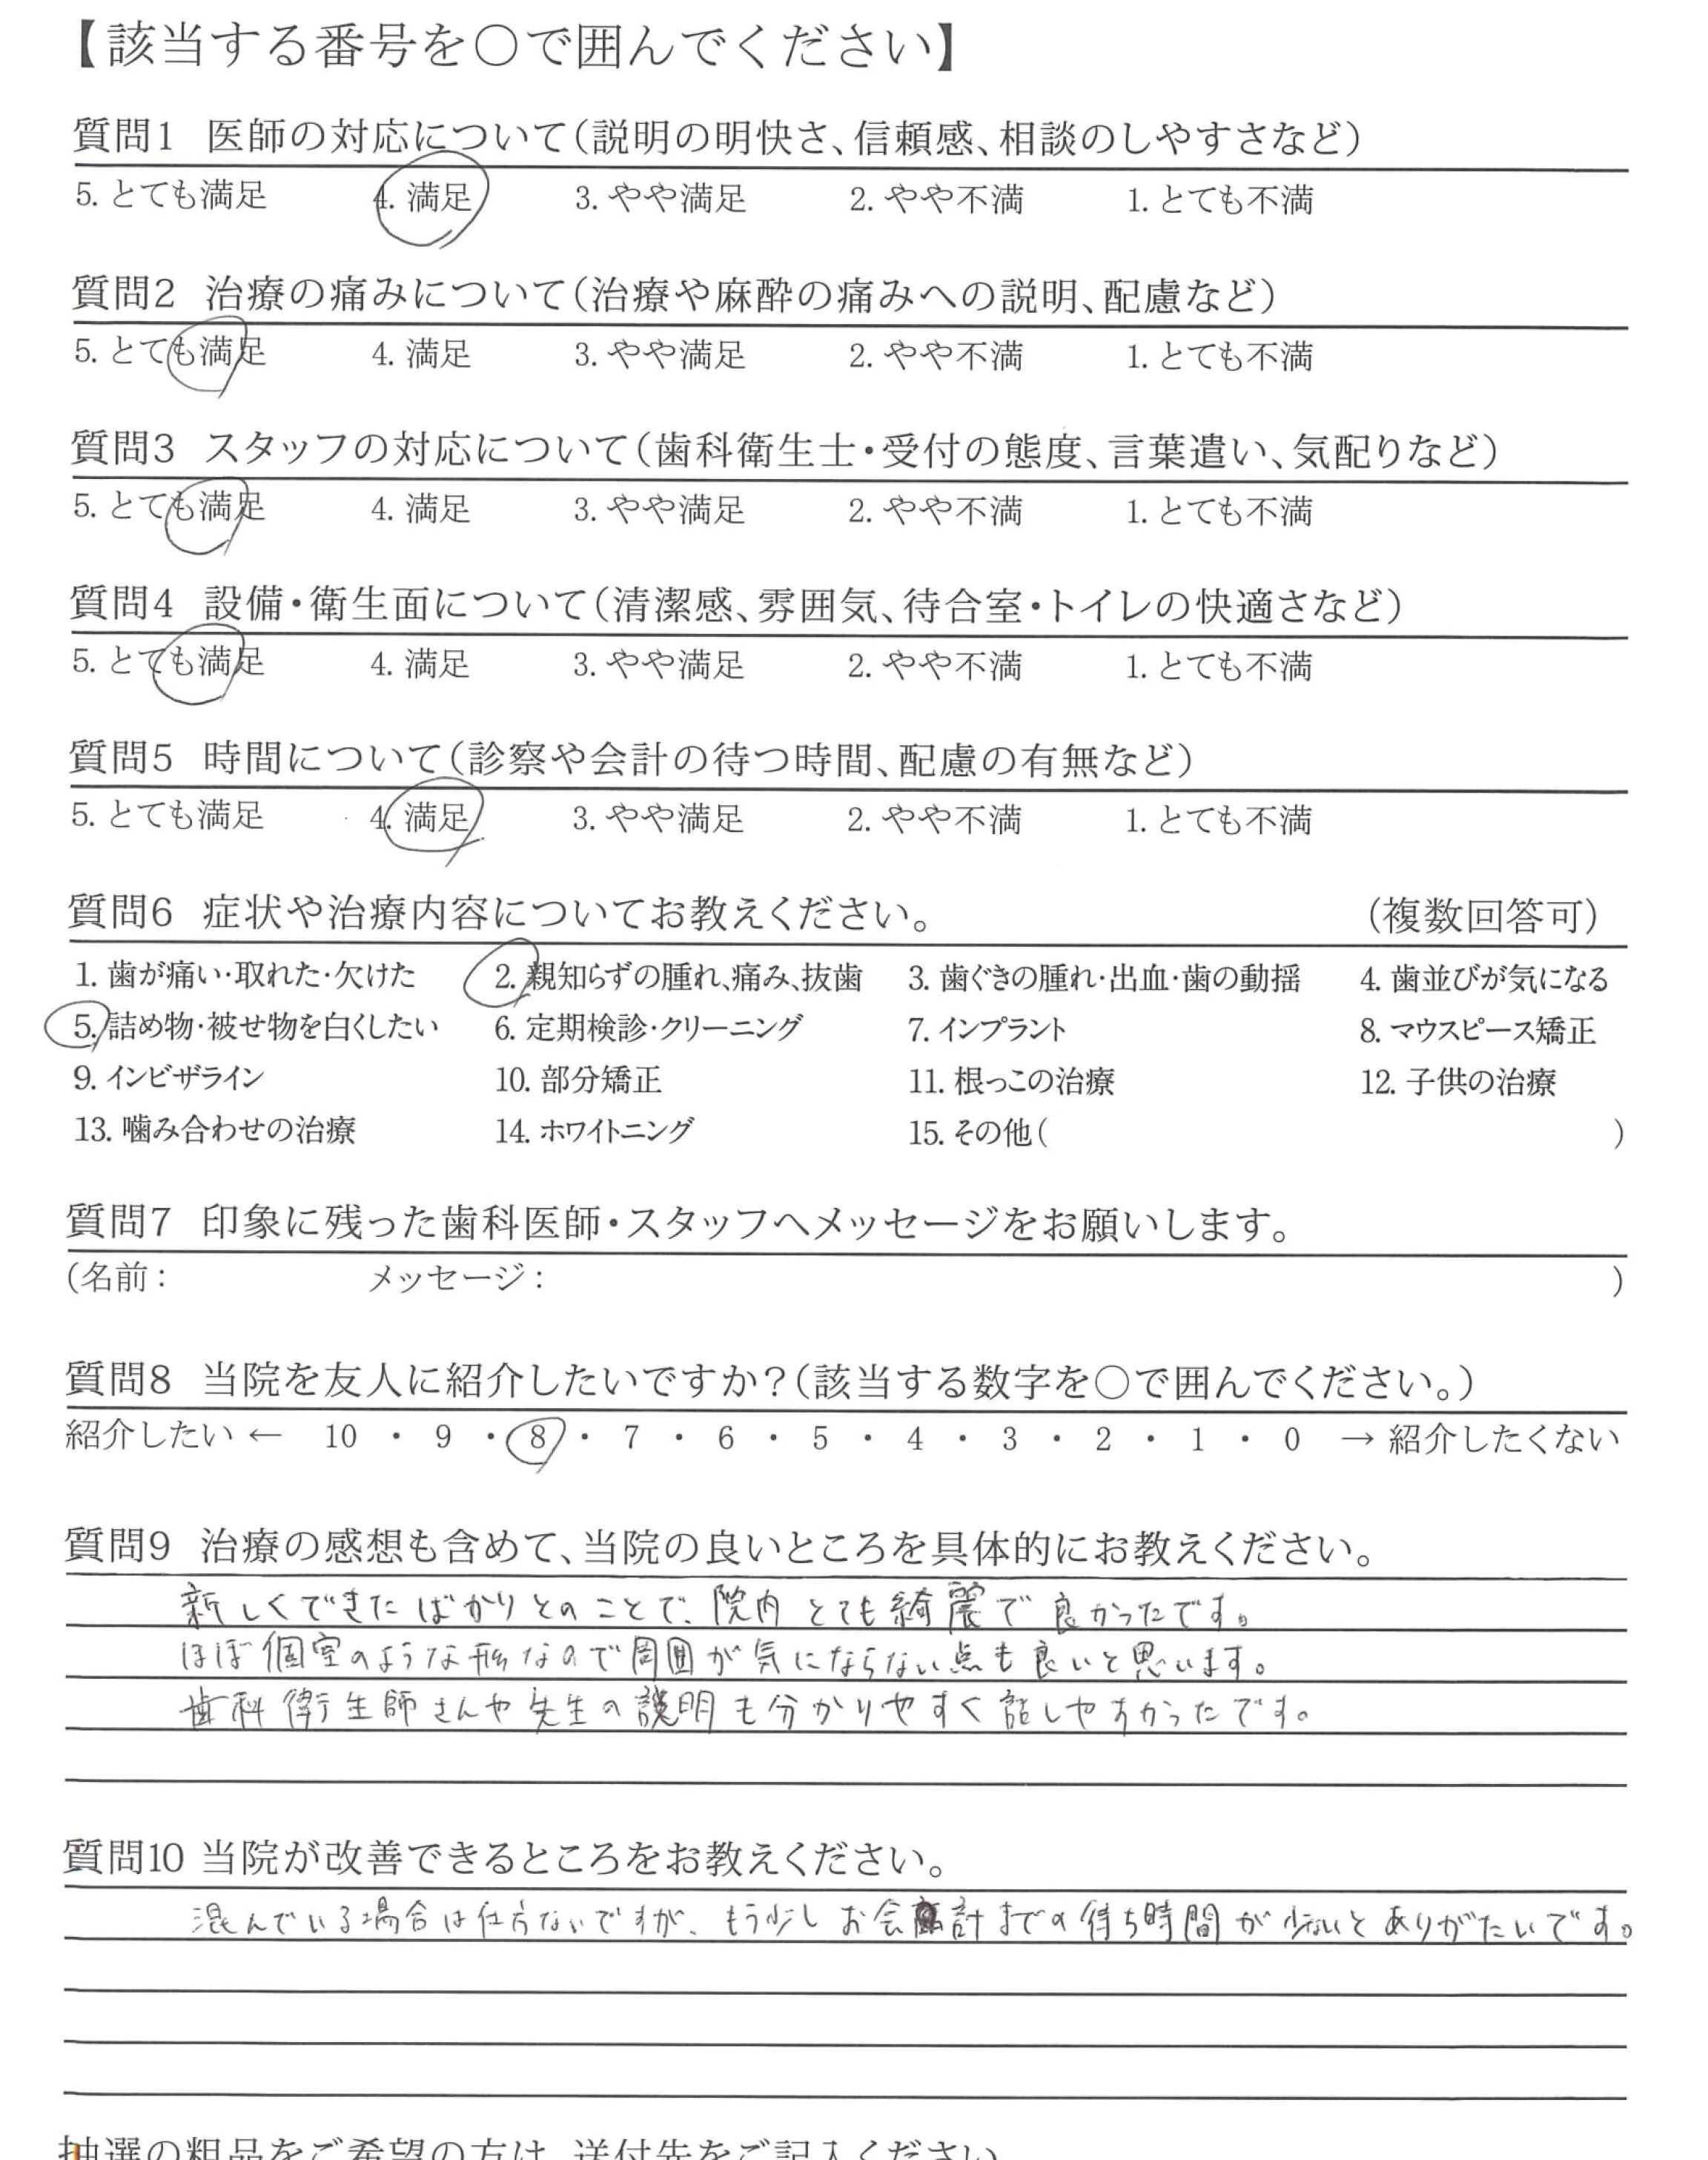 【該当する番号を〇で囲んでください】
質問1 医師の対応について(説明の明快さ、信頼感、相談のしやすさなど)
5. とても満足 4. 満足 3. やや満足 2. やや不満 1. とても不満
質問2 治療の痛みについて(治療や麻酔の痛みへの説明、配慮など)
5. とても満足 4. 満足 3. やや満足 2. やや不満 1. とても不満
質問3 スタッフの対応について(歯科衛生士・受付の態度、言葉遣い、気配りなど)
5. とても満足 4. 満足 3. やや満足 2. やや不満 1. とても不満
質問4 設備・衛生面について(清潔感、雰囲気、待合室・トイレの快適さなど)
5. とても満足 4. 満足 3. やや満足 2. やや不満 1. とても不満
質問5 時間について(診察や会計の待つ時間、配慮の有無など)
5. とても満足 4. 満足 3. やや満足 2. やや不満 1. とても不満
質問6 症状や治療内容についてお教えください。 (複数回答可)
1. 歯が痛い・取れた・欠けた 2. 親知らずの腫れ、痛み、抜歯 3. 歯ぐきの腫れ・出血・歯の動揺 4. 歯並びが気になる
5. 詰め物・被せ物を白くしたい 6. 定期検診・クリーニング 7. インプラント 8. マウスピース矯正
9. インビザライン 10. 部分矯正 11. 根っこの治療 12. 子供の治療
13. 噛み合わせの治療 14. ホワイトニング 15. その他( )
質問7 印象に残った歯科医師・スタッフへメッセージをお願いします。
(名前: メッセージ: )
質問8 当院を友人に紹介したいですか?(該当する数字を〇で囲んでください。)
紹介したい ← 10 ・ 9 ・ 8 ・ 7 ・ 6 ・ 5 ・ 4 ・ 3 ・ 2 ・ 1 ・ 0 → 紹介したくない
質問9 治療の感想も含めて、当院の良いところを具体的にお教えください。
新しくできたばかりとのことで、院内とても綺麗で良かったです。
ほぼ個室のような形なので周囲が気にならない点も良いと思います。
歯科衛生師さんや先生の説明も分かりやすく話しやすかったです。
質問10 当院が改善できるところをお教えください。
混んでいる場合は仕方ないですが、もう少しお会計までの待ち時間が少ないとありがたいです。
抽選の粗品をご希望の方は、送付先をご記入ください